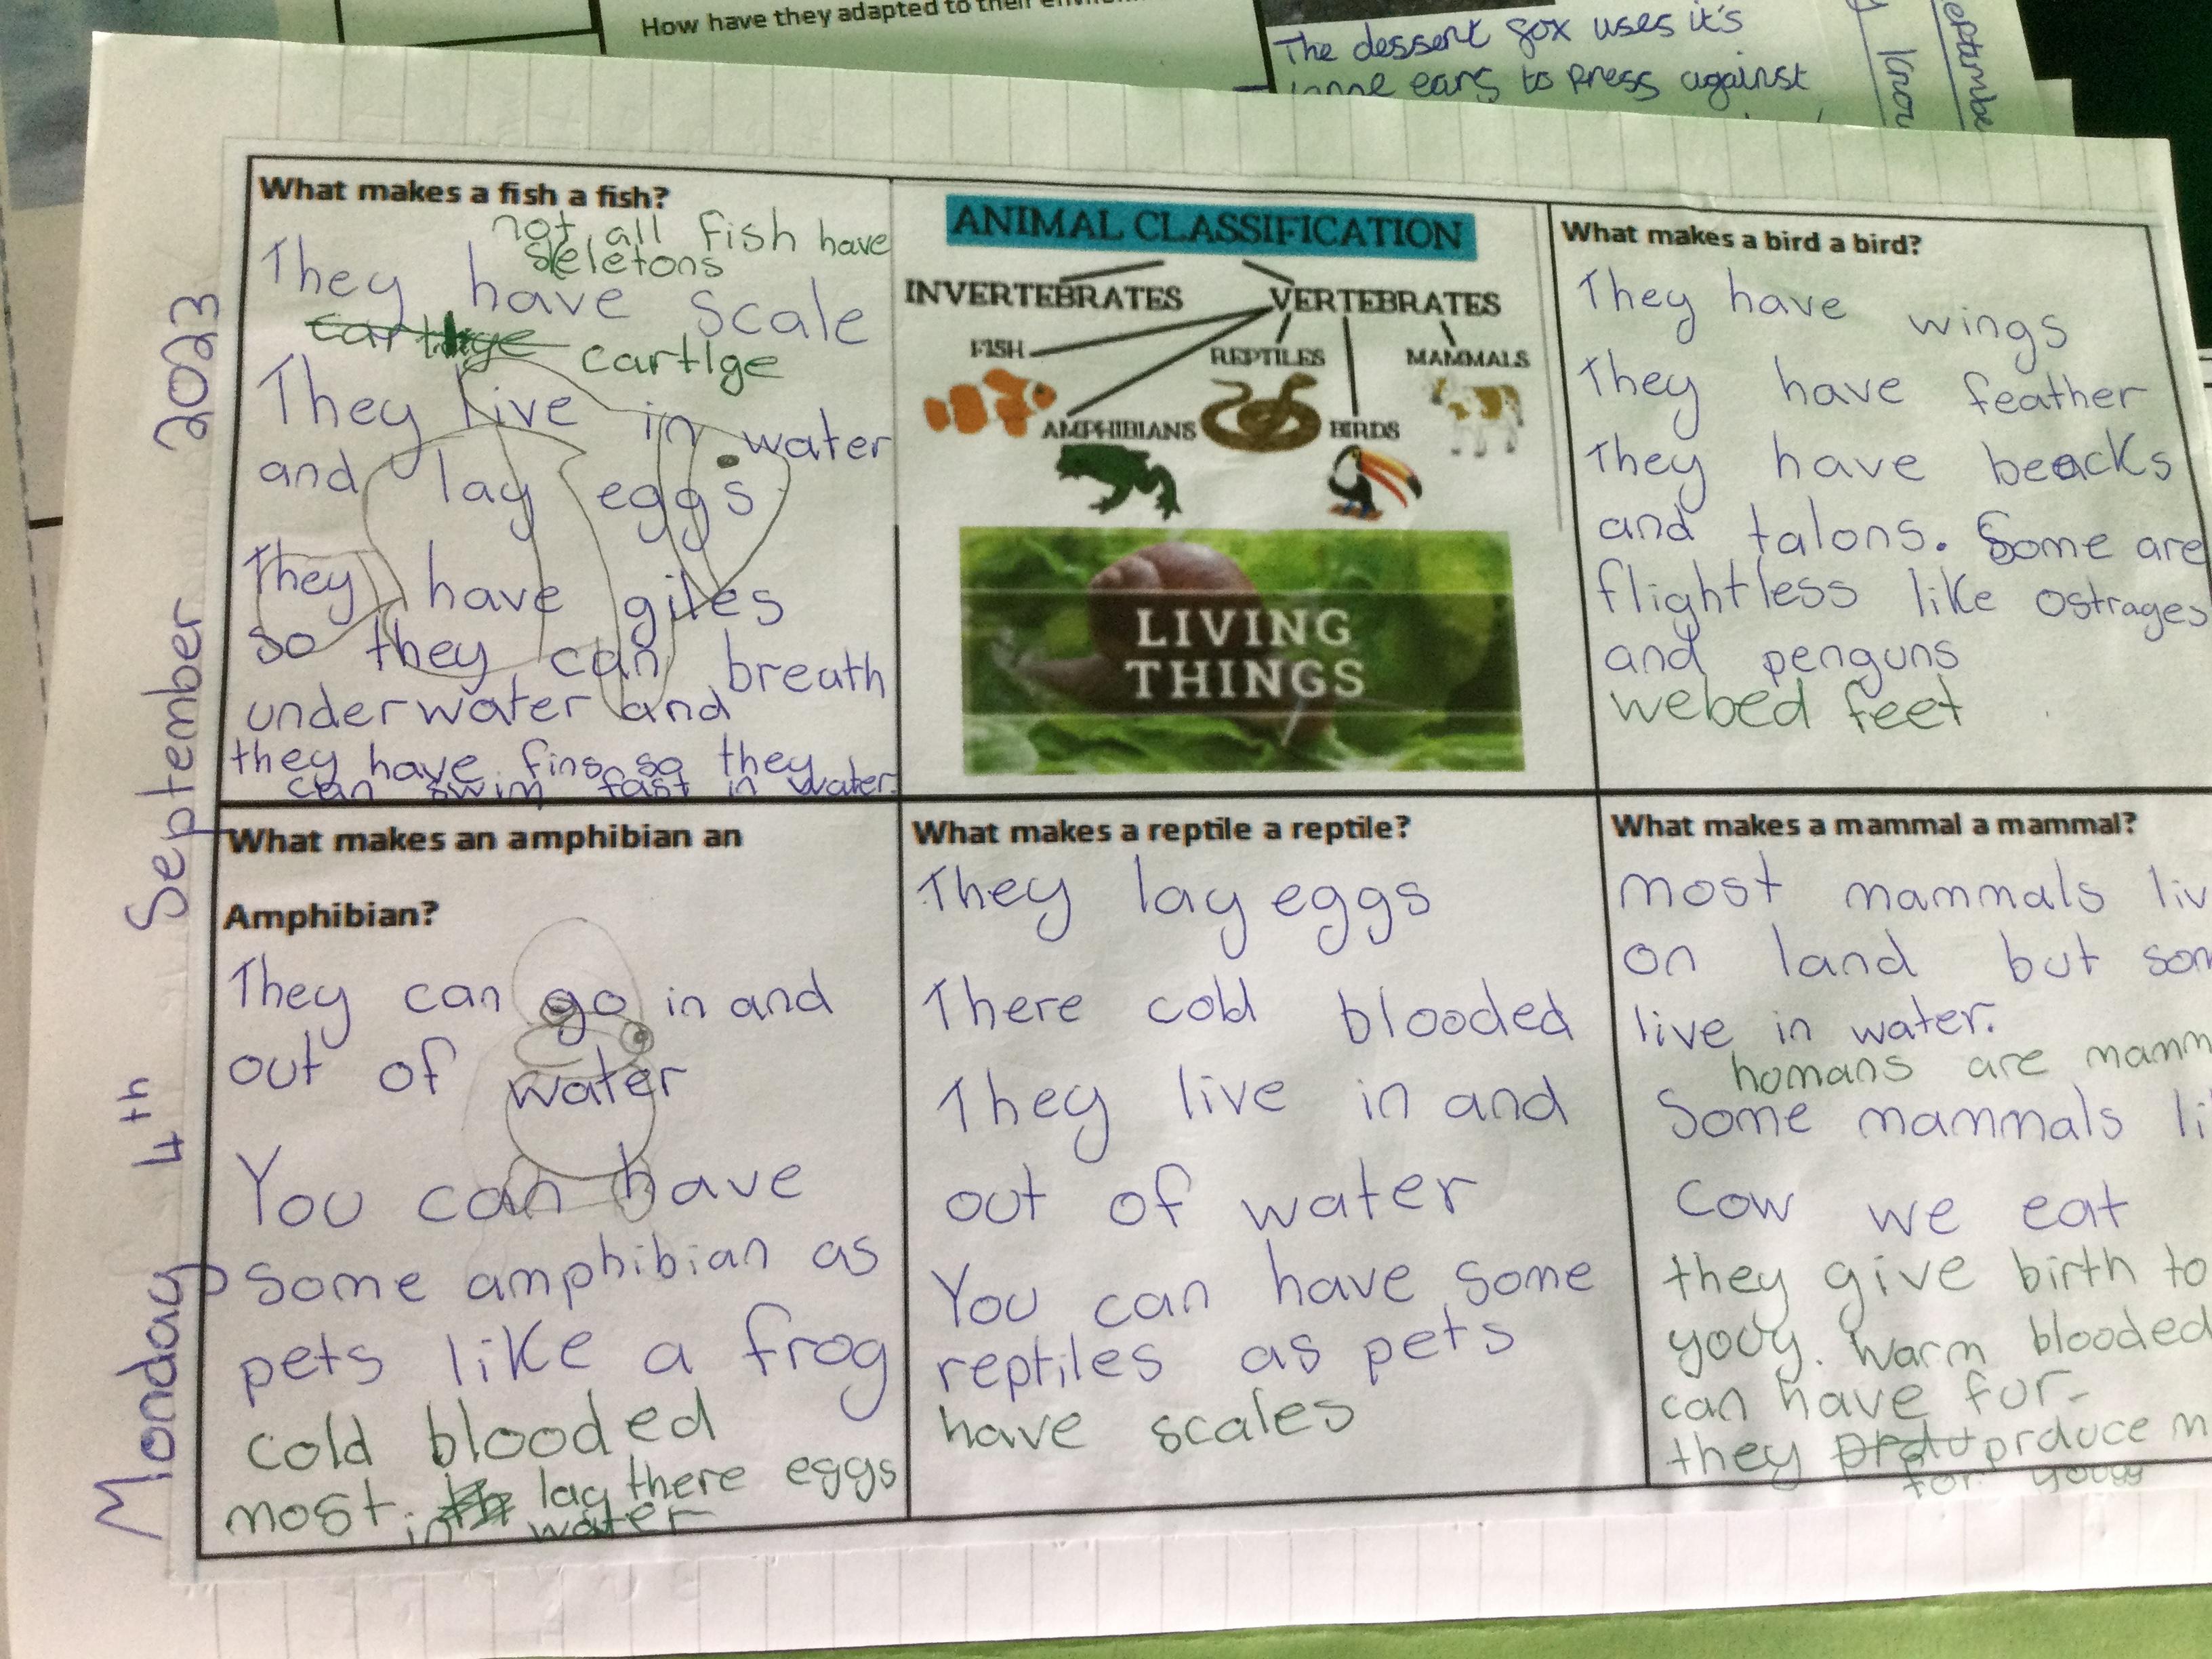 How have they adapted to their
The dessert fox uses it's
ears to press against
eptembe
Know
Monday 4th September 2023
What makes a fish a fish?
not all fish have
skeletons
They have scale
cartlge
They live in water
and lay eggs
They have giles
so they can breath
underwater and
they have fins so they
can swim fast in water.
ANIMAL CLASSIFICATION
INVERTEBRATES VERTEBRATES
FISH REPTILES MAMMALS
AMPHIBIANS BIRDS
LIVING
THINGS
What makes a bird a bird?
They have wings
They have feather
They have beacks
and talons. Some are
flightless like ostrages
and penguns
webed feet
What makes an amphibian an
Amphibian?
They can go in and
out of water
You can have
some amphibian as
pets like a frog
cold blooded
most lay there eggs
in water
What makes a reptile a reptile?
They lay eggs
There cold blooded
They live in and
out of water
You can have some
reptiles as pets
have scales
What makes a mammal a mammal?
most mammals liv
on land but som
live in water.
homans are mamm
Some mammals li
cow we eat
they give birth to
warm blooded
can have fur
they prduce m
for